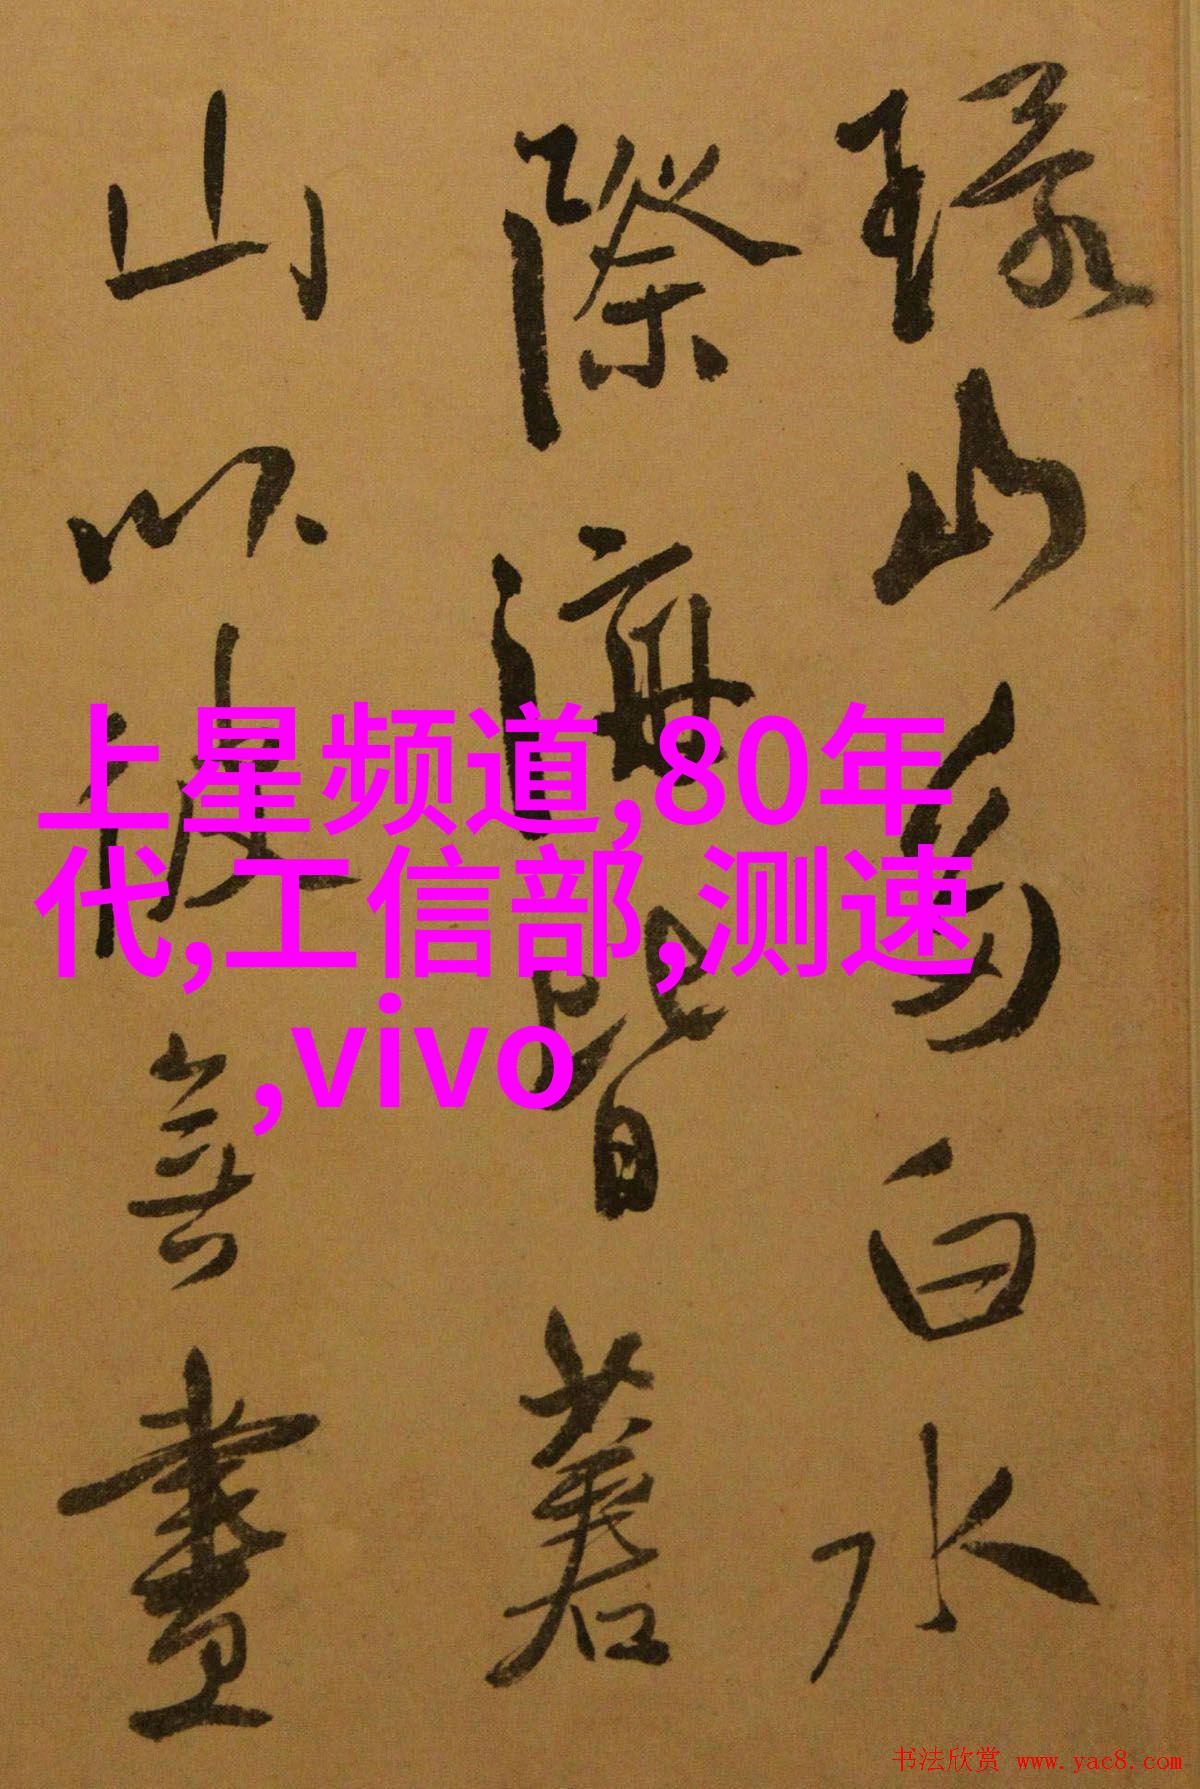 山白水
際海皆
山以彼無盡
上星频道,80年
代,工信部,测速
,vivo
书法欣赏 www.yac8.com